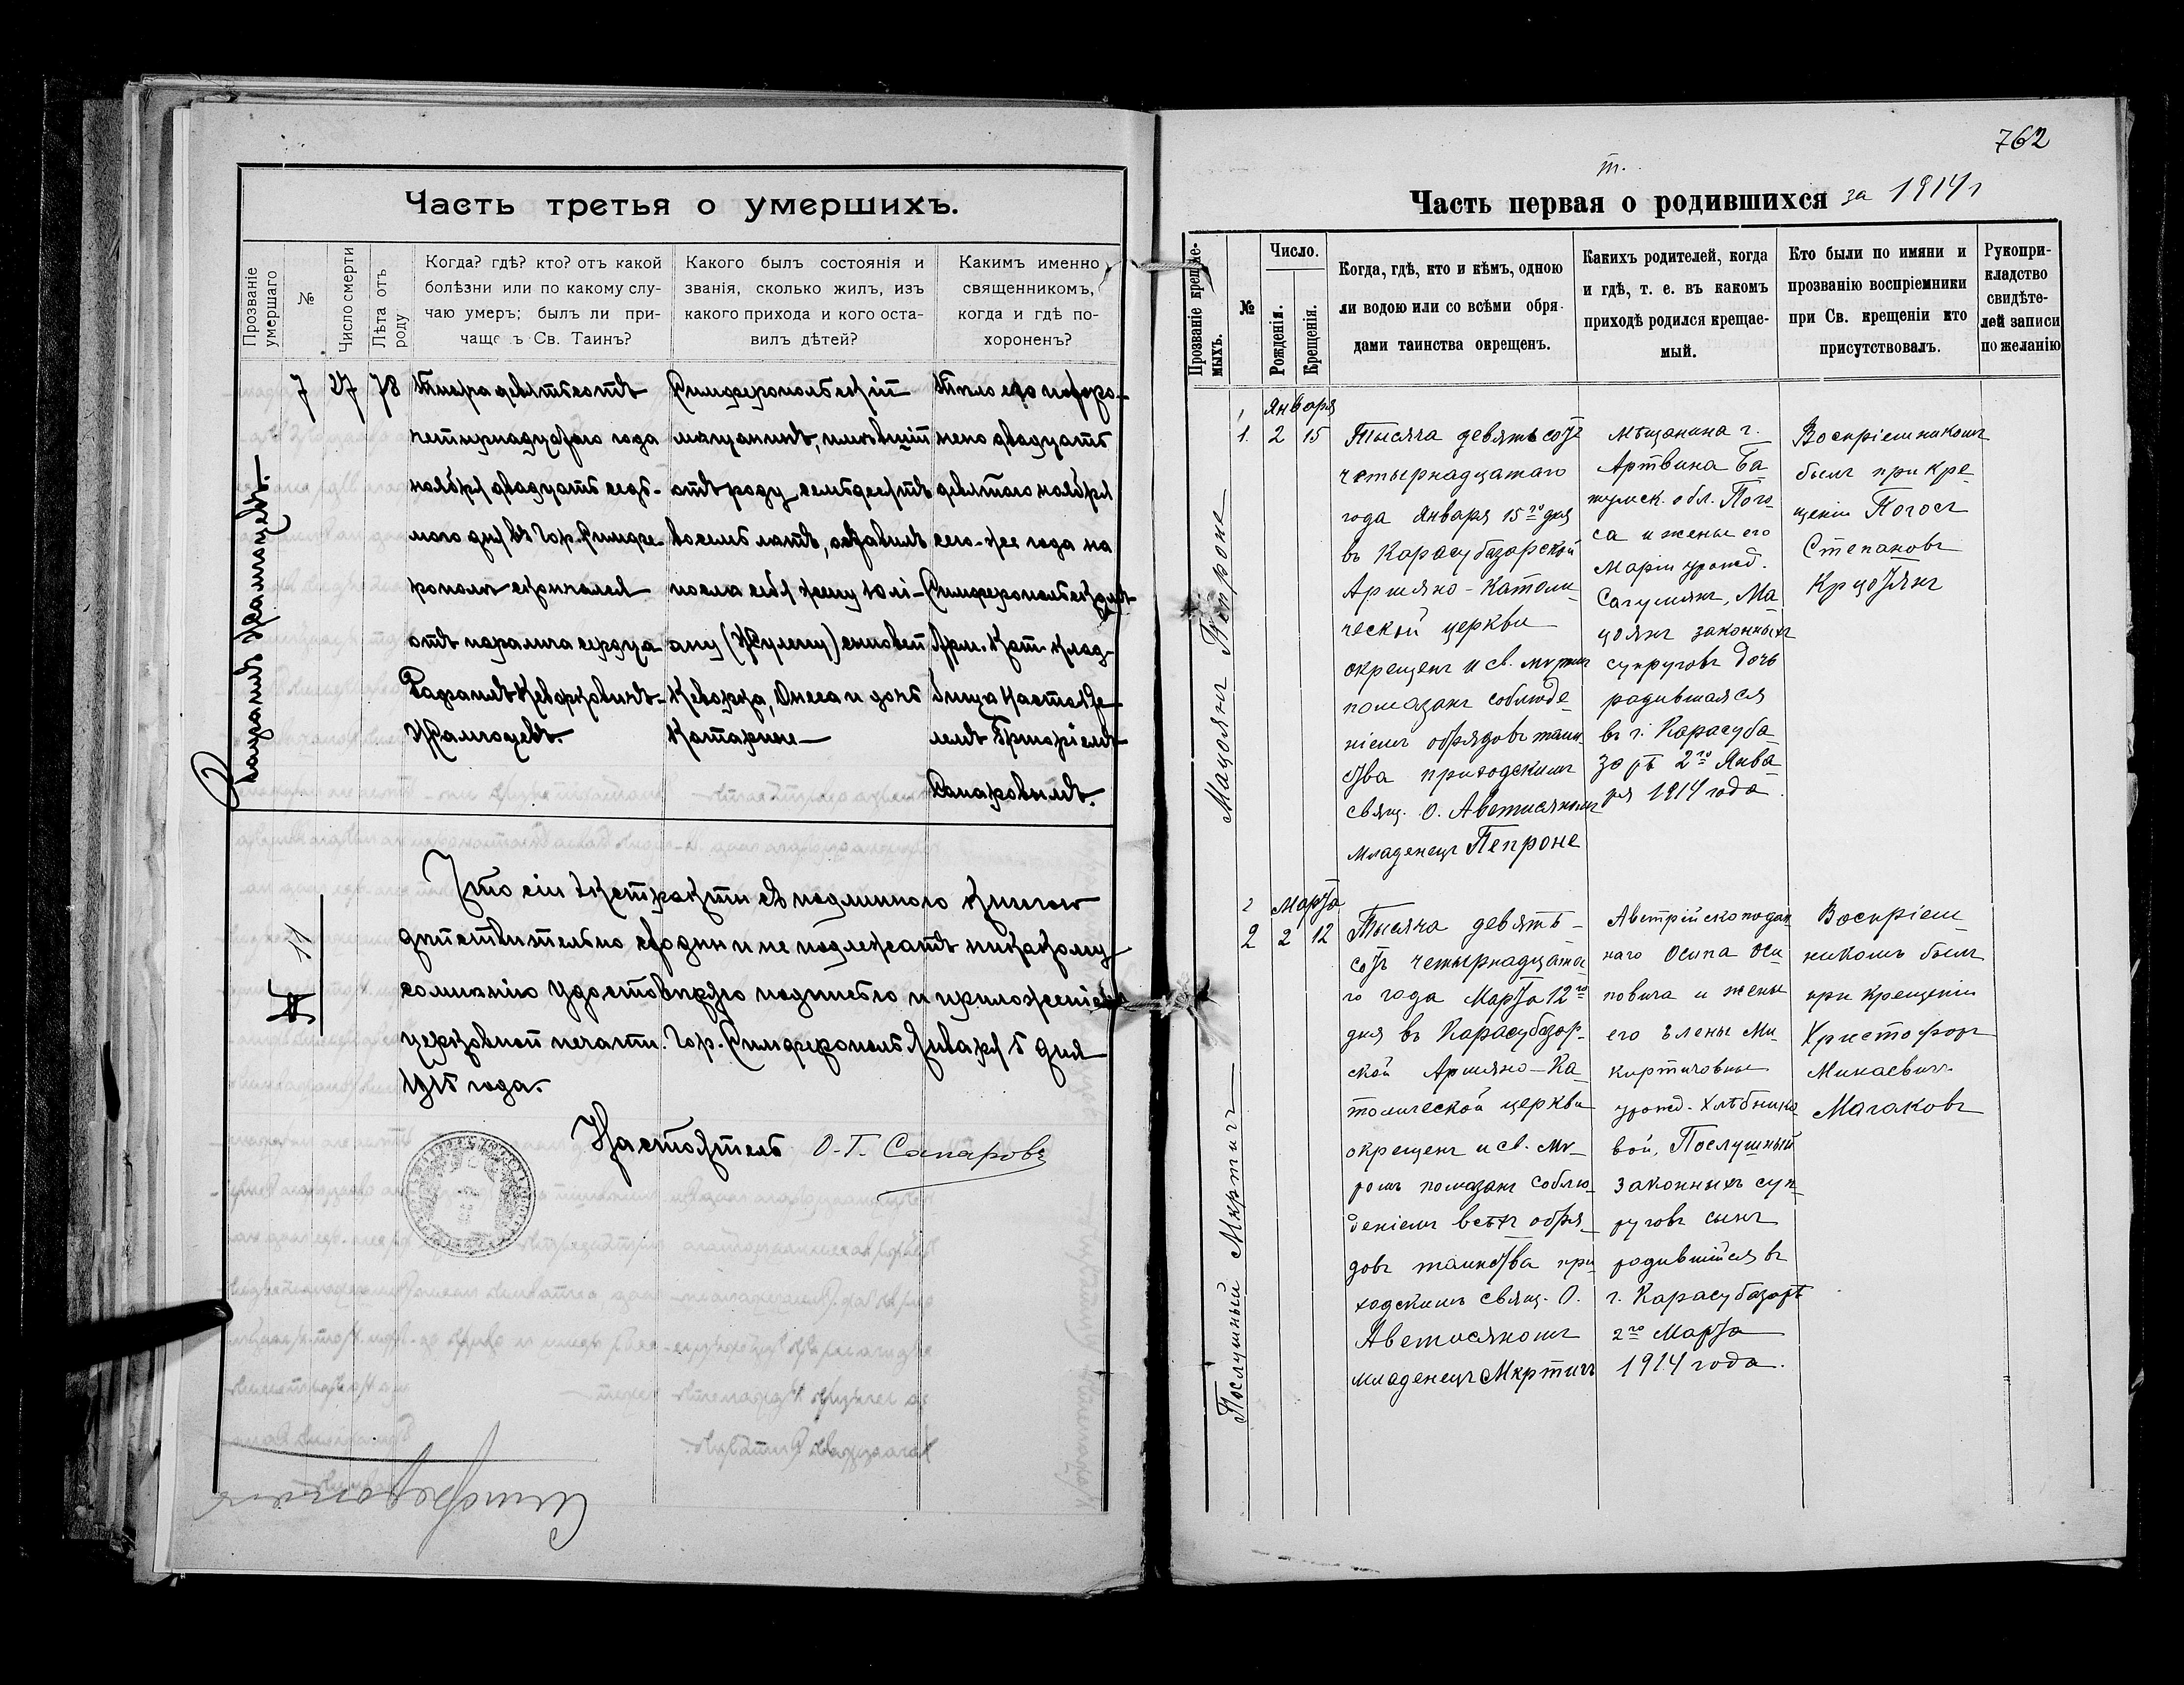 Часть третья о умершихъ.
Прозваніе умершаго
№
Число смерти
Лѣта отъ роду
Когда? гдѣ? кто? отъ какой
болѣзни или по какому слу-
чаю умеръ; былъ ли при-
чащенъ Св. Таинъ?
Какого былъ состоянія и
званія, сколько жилъ, изъ
какого прихода и кого оста-
вилъ дѣтей?
Какимъ именно
священникомъ,
когда и гдѣ по-
хороненъ?
7
27
78
девятьсотъ
четырнадцатаго года
ноября двадцать седь-
мого дня въ Гор. Симфе-
рополѣ скончался
отъ паралича сердца
Симферопольскій
мѣщанинъ, имѣвшій
отъ роду семьдесятъ
восемь лѣтъ, оставилъ
послѣ себя жену Юлі-
ану сыновей
Кеворка, Онеса и дочь
Катарине
Тѣло его похоро-
нено двадцать
девятого ноября
сего-же года на
Симферопольскомъ
Арм. Кат. клад-
бища настояте-
лемъ Григоріемъ
Сапаровымъ.
Что сіи экстракти съ подлинного книгою
дѣйствительно сходны и не подлежатъ никакому
сомнѣнію удостовѣряю подписью и приложеніемъ
церковной печати. Гор. Симферополь Января 5 дня
1915 года.
№ 11
Настоятель О. Г. Сапаровъ
762
Часть первая о родившихся за 1914 г
Прозваніе крещае-
мыхъ.
№
Число.
Рожденія.
Крещенія.
Когда, гдѣ, кто и кѣмъ, одною
ли водою или со всѣми обря-
дами таинства окрещенъ.
Какихъ родителей, когда
и гдѣ, т. е. въ какомъ
приходѣ родился крещае-
мый.
Кто были по имяни и
прозванію воспріемники
при Св. крещеніи кто
присутствовалъ.
Рукопри-
кладство
свидѣте-
лей записи
по желанію
Мацоянъ Пепроне
1
Января
1.
2
15
Тысяча девятьсотъ
четырнадцатаго
года Января 15го дня
въ Карасубазарской
Армяно-Католи
ческой церкви
окрещенъ и св. муромъ
помазанъ соблюде
ніемъ обрядовъ таин
ства приходскимъ
свящ. О. Аветисяномъ
младенецъ Пепроне
Мѣщанина г.
Артвина Ба
тумск. обл. Пого
са и жены его
Маріи урожд.
Сагумянъ, Ма
цоянъ законныхъ
супруговъ дочь
родившаяся
въ г. Карасуба
зарѣ 2го Янва
ря 1914 года.
Воспріемникомъ
былъ при кре
щеніи Погосъ
Степановъ
Крцотянъ
Послушный Мкртичъ
2
Марта
2
2
12
Тысяча девять
сотъ четырнадцата
го года Марта 12го
дня въ Карасубазар
ской Армяно-Ка
толической церкви
окрещенъ и св. му
ромъ помазанъ соблю
деніемъ всѣхъ обря
довъ таинства при
ходскимъ свящ. О.
Аветисяномъ
младенецъ Мкртичъ
Австрійско подан
наго Осипа Оси
повича и жены
его Елены Ми
киртичовны
урожд. Хлѣбнико
вой, Послушный
законныхъ суп
руговъ сынъ
родившійся въ
г. Карасубазарѣ
2го Марта
1914 года.
Воспріем
никомъ былъ
при крещеніи
Христофоръ
Минаевичъ
Магаковъ